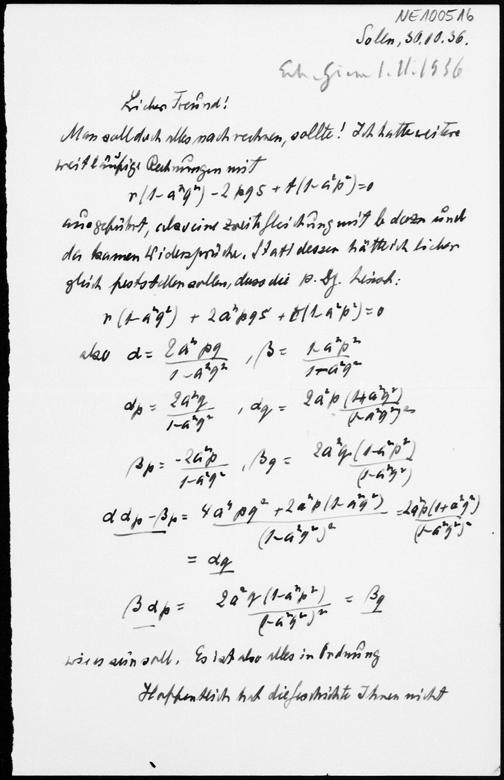 NE100516
Solln, 30.10.36.
1.11.1936
Lieber Freund!
Man soll doch alles nachrechnen, sollte! Ich hatte weitere
weitläufige Rechnungen mit
r(1-a²q²) - 2pqs + t(1-a²p²) = 0
ausgeführt, also eine zweite Gleichung mit b dazu und
da kamen Widersprüche. Statt dessen hätte ich lieber
gleich feststellen sollen, dass die p. Dg. heisst:
r(1-a²q²) + 2a²pqs + t(1-a²p²) = 0
also α = 2a²pq / (1-a²q²), β = (1-a²p²) / (1-a²q²)
αp = 2a²q / (1-a²q²), αq = 2a²p (1+a²q²) / (1-a²q²)²
βp = -2a²p / (1-a²q²), βq = 2a²q (1-a²p²) / (1-a²q²)
ααp - βp = (4a⁴pq² + 2a²p(1-a²q²)) / (1-a²q²)² = 2a²p(1+a²q²) / (1-a²q²)²
= αq
βαp = 2a²q(1-a²p²) / (1-a²q²)² = βq
wie es sein soll. Es ist also alles in Ordnung
Hoffentlich hat die Geschichte Ihnen nicht